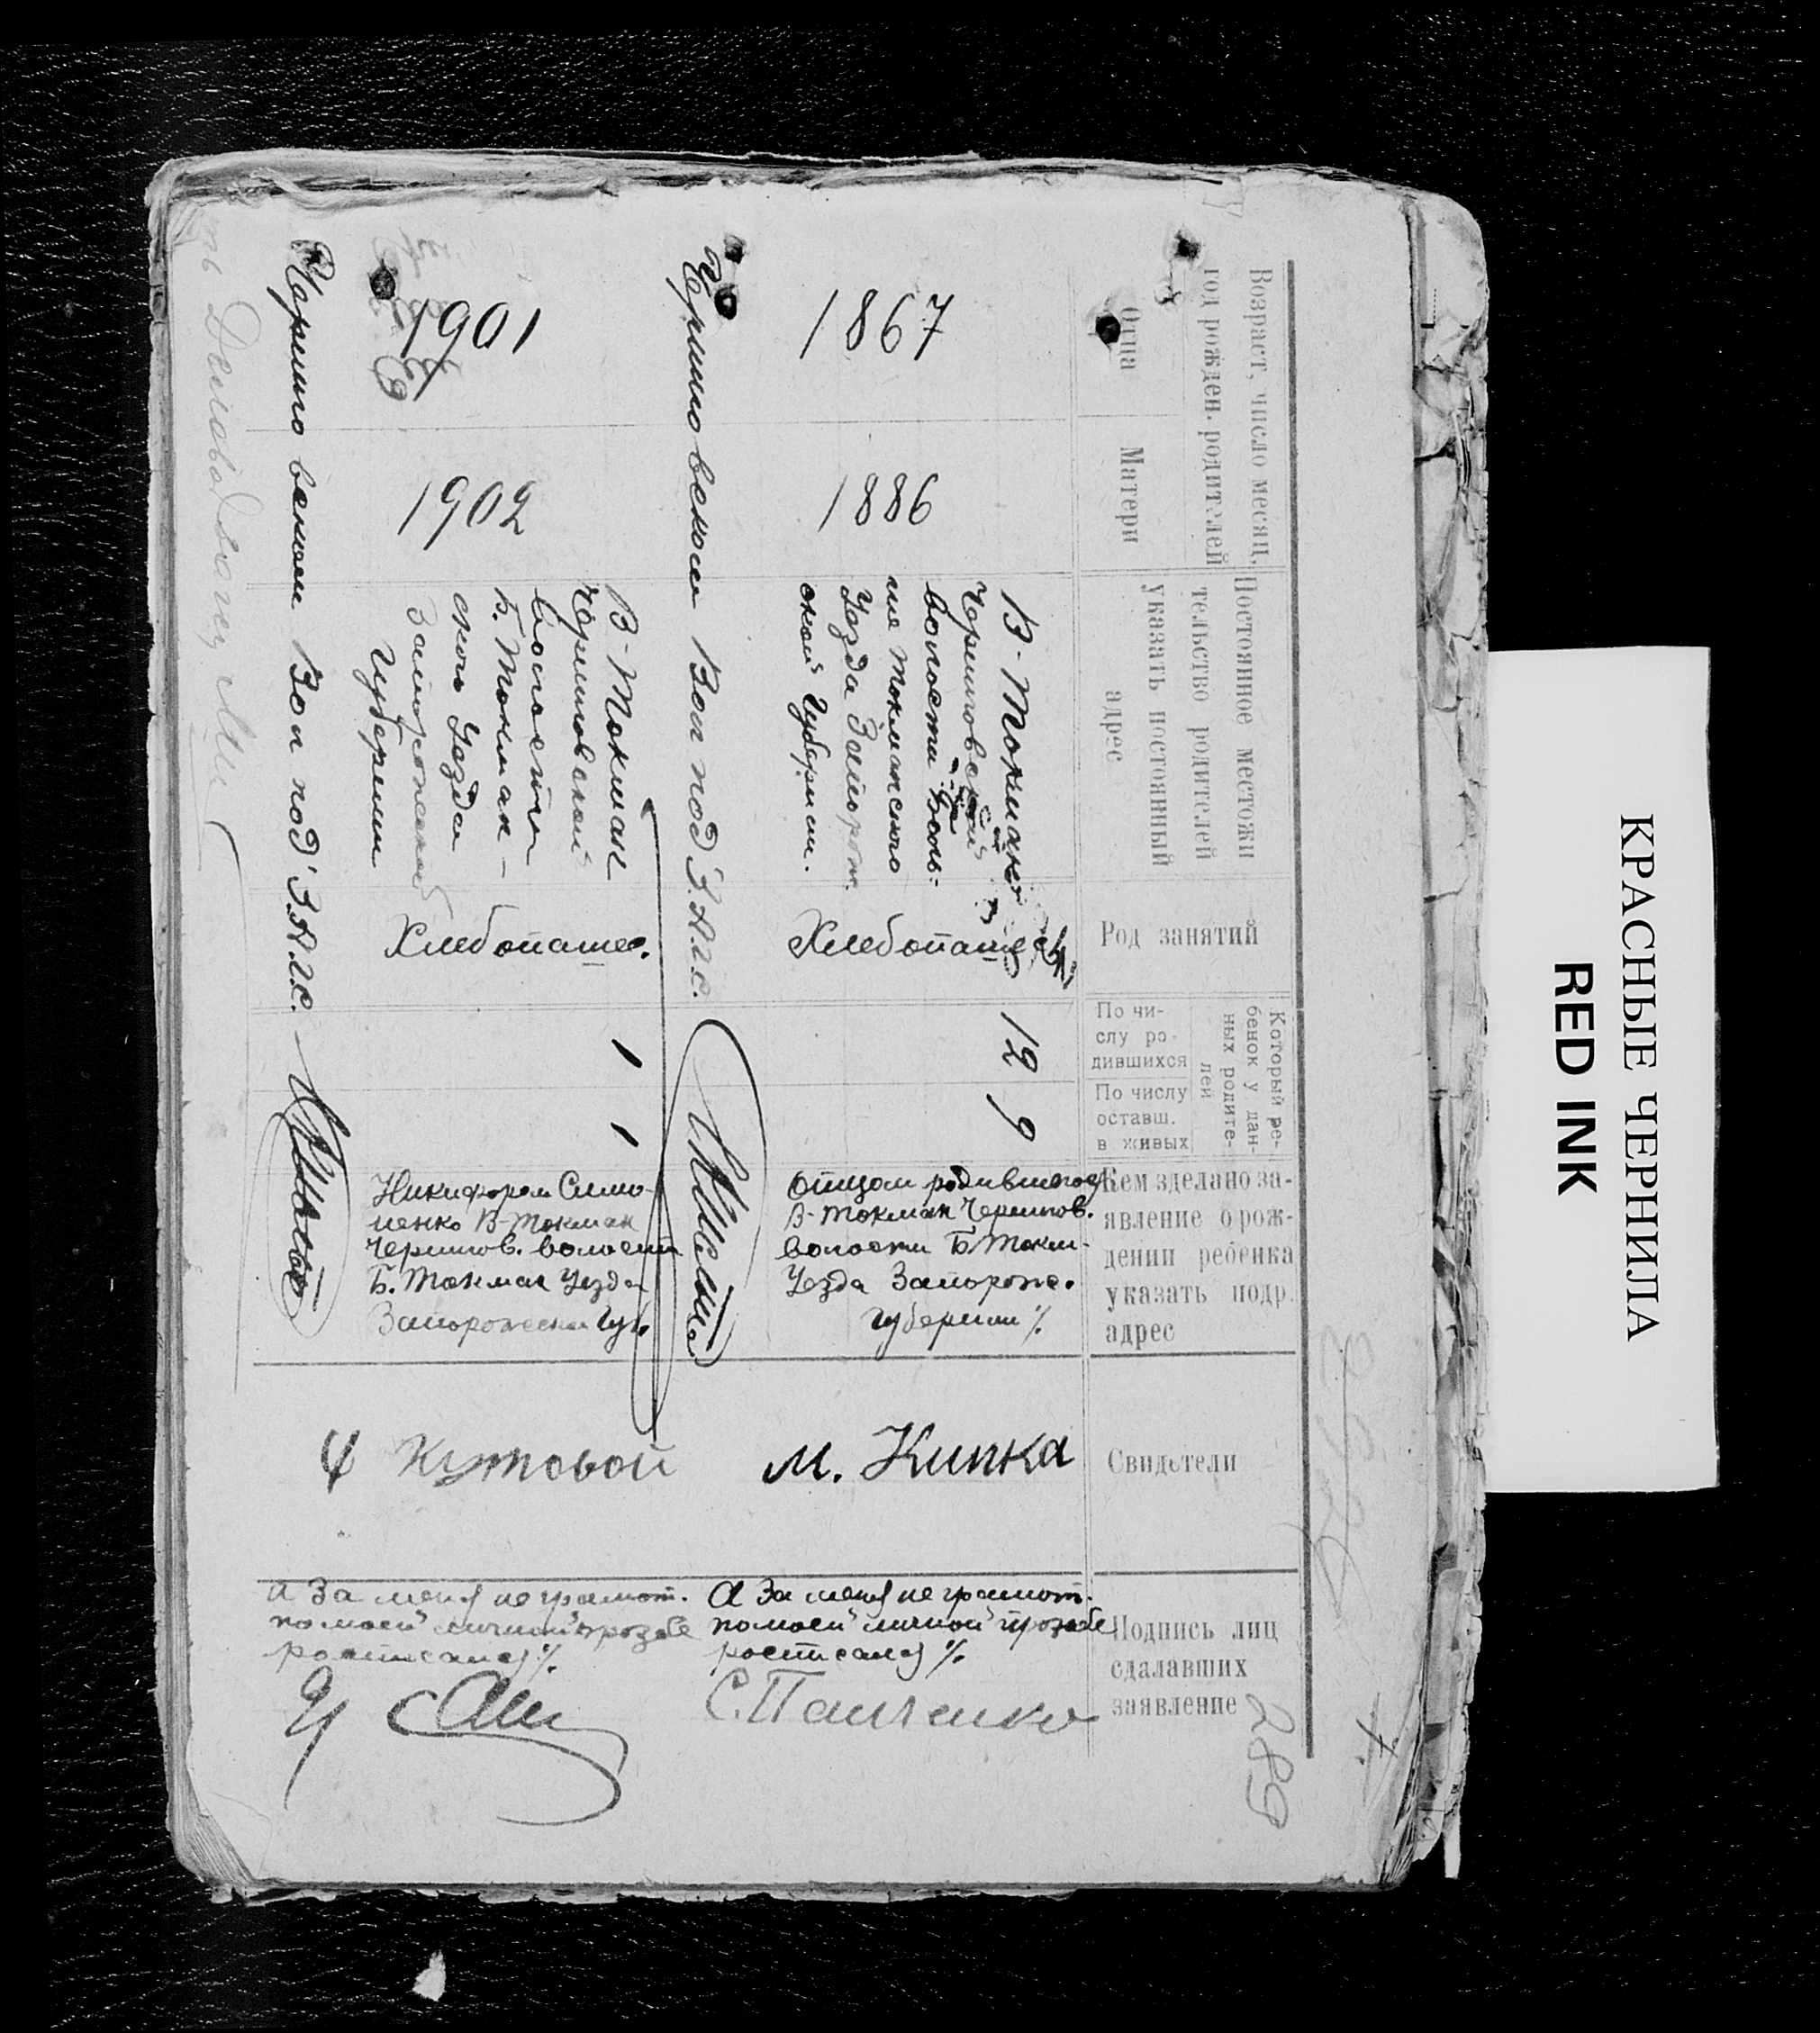 Возраст, число месяц,
год рожден. родителей
Отца
Матери
Постоянное местожи
тельство родителей
указать постоянный
адрес
Род занятий
Который ре-
бенок у дан-
ных родите-
лей
По чи-
слу ро-
дившихся
По числу
оставш.
в живых
Кем зделано за-
явление о рож-
дении ребенка
указать подр.
адрес
Свидетели
Подпись лиц
сдалавших
заявление
289
1867
1886
В-Токмак
Черниговской
волости Боль-
ше Токмакского
Уезда Запорож.
ской Губернии.
Хлебопашец
12
9
Отцом родившегося
В-Токмак Чернигов.
волости Б Токм-
Уезда Запорож.
Губернии %
М. Кипка
А За меня не грамот.
по моей личной прозьбе
росписался %
С. Панченко
под З.А.Г.С.
1901
1902
В-Токмак
Черниговской
Волости
Б. Токмак-
ского Уезда
Запорожской
Губернии
Хлебопашес.
1
1
Никифором Симо-
ненко В-Токмак
Чернигов. волости
Б. Токмак Уезда
Запорожской Губ.
Кутовой
А За меня не грамот.
по моей личной прозбе
росписался %
под З.А.Г.С.
КРАСНЫЕ ЧЕРНИЛА
RED INK